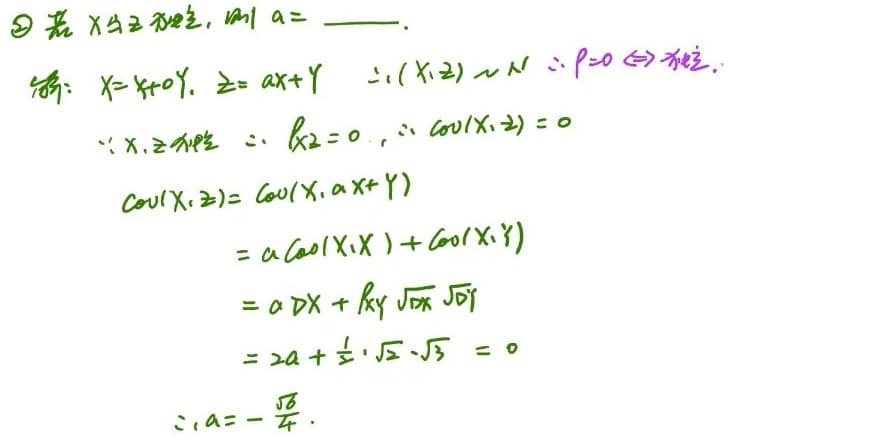 ② 若 X与Z独立, 则 a= ______.
解: X=X+0Y. Z=aX+Y ∴(X,Z)~N ∴ρ=0⇔独立.
∵X,Z独立 ∴ρxz=0, ∴Cov(X,Z)=0
Cov(X,Z)=Cov(X,aX+Y)
=aCov(X,X)+Cov(X,Y)
=aDX+ρxy√DX √DY
=2a+½·√2·√3 =0
∴a=-√6/4.